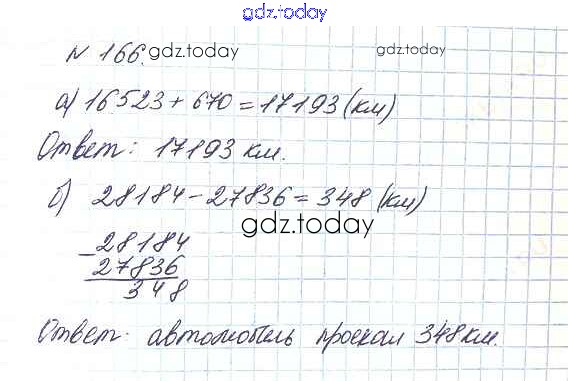 gdz.today
N 166. gdz.today gdz.today
а) 16523 + 670 = 17193 (км)
Ответ: 17193 км.
б) 28184 - 27836 = 348 (км)
gdz.today
- 28184
27836
348
Ответ: автомобиль проехал 348 км.